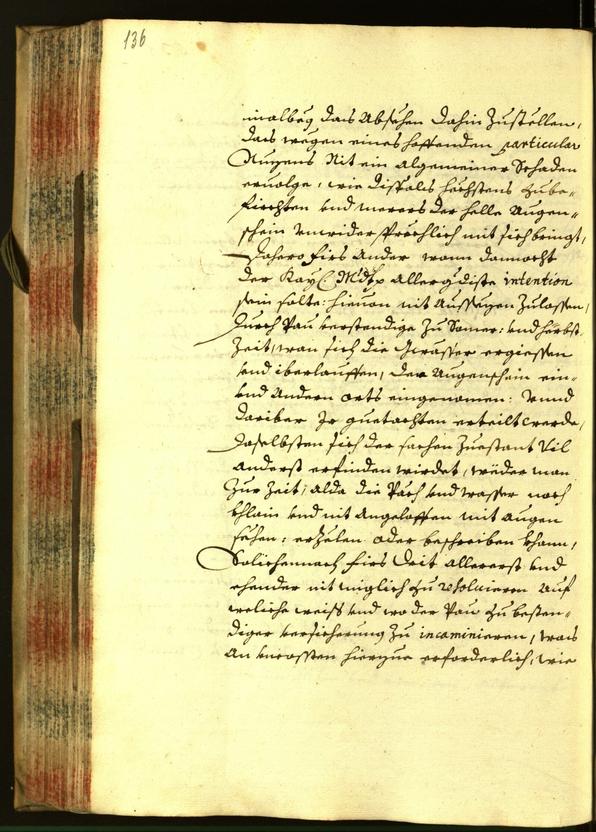 136
das Absehen dahin Zustöllen,
das wegen eines hoffenden particular
Nuzens Nit ein algemeiner Schaden
ervolge, wie dißfals höchstens Zube-
firchten und merers der helle Augen-
schein unwidersprechlich mit sich bringt,
Dahero firs Ander, wann dannocht
der Kay: Mäytt: allergdiste intention
sein solte: hievon nit ausseyen Zulassen,
durch Pau verstendige Zu Somer: und herbst
Zeit, wan sich die Gewässer ergiessen
und iberlauffen, der Augenschein ein-
und Andern orts eingenomen: Unnd
dariber Ir guetachten erteilt werde,
Daselbsten sich der sachen Zuestant Vil
Anderst erfinden wirdet, weder man
Zur Zeit, alda die Päch und wasser noch
khlain und nit Angeloffen mit augen
sehen: erzelen oder beschreiben khann,
Solichemnach firs Drit allererst und
ehender nit miglich Zu resolvieren Auf
weliche weiss und wo der Pau Zu besten-
diger versicherung Zu incaminieren, was
An uncossten hierzue erforderlich, wie